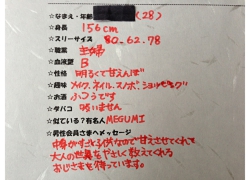 ☆なまえ・年齢 (28)
☆身長 156cm
☆スリーサイズ 80.62.78
☆職業 主婦
☆血液型 B
☆性格 明るくて甘えんぼ
☆趣味 メイク、ネイル、スノボ、ショッピング
☆お酒 ふつうです
☆タバコ 吸いません
☆似ている?有名人 MEGUMI
☆男性会員さまへメッセージ
中身がすごく子供なので甘えさせてくれて
大人の世界をやさしく教えてくれる
おじさまを待っています。